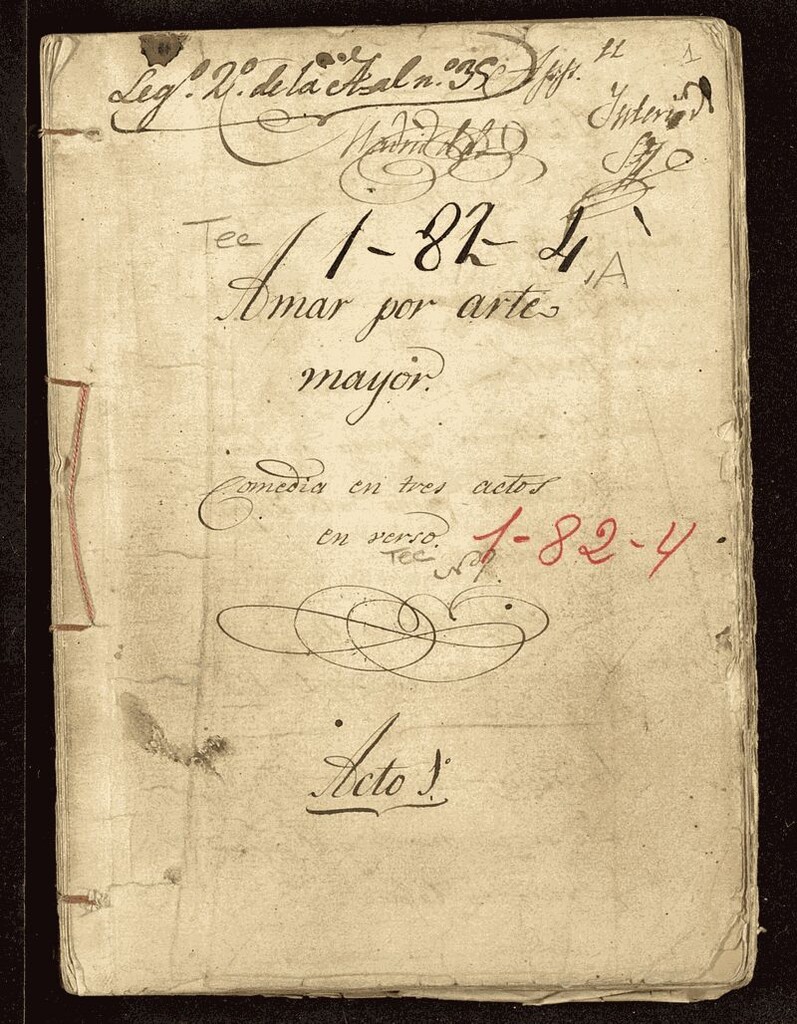 1
Legº. 2º. de la A. al nº. 35
11
Madrid
Tec
1-82-4
, A
Amar por arte
mayor.
Comedia en tres actos
en verso.
1-82-4
Tec
Acto 1º